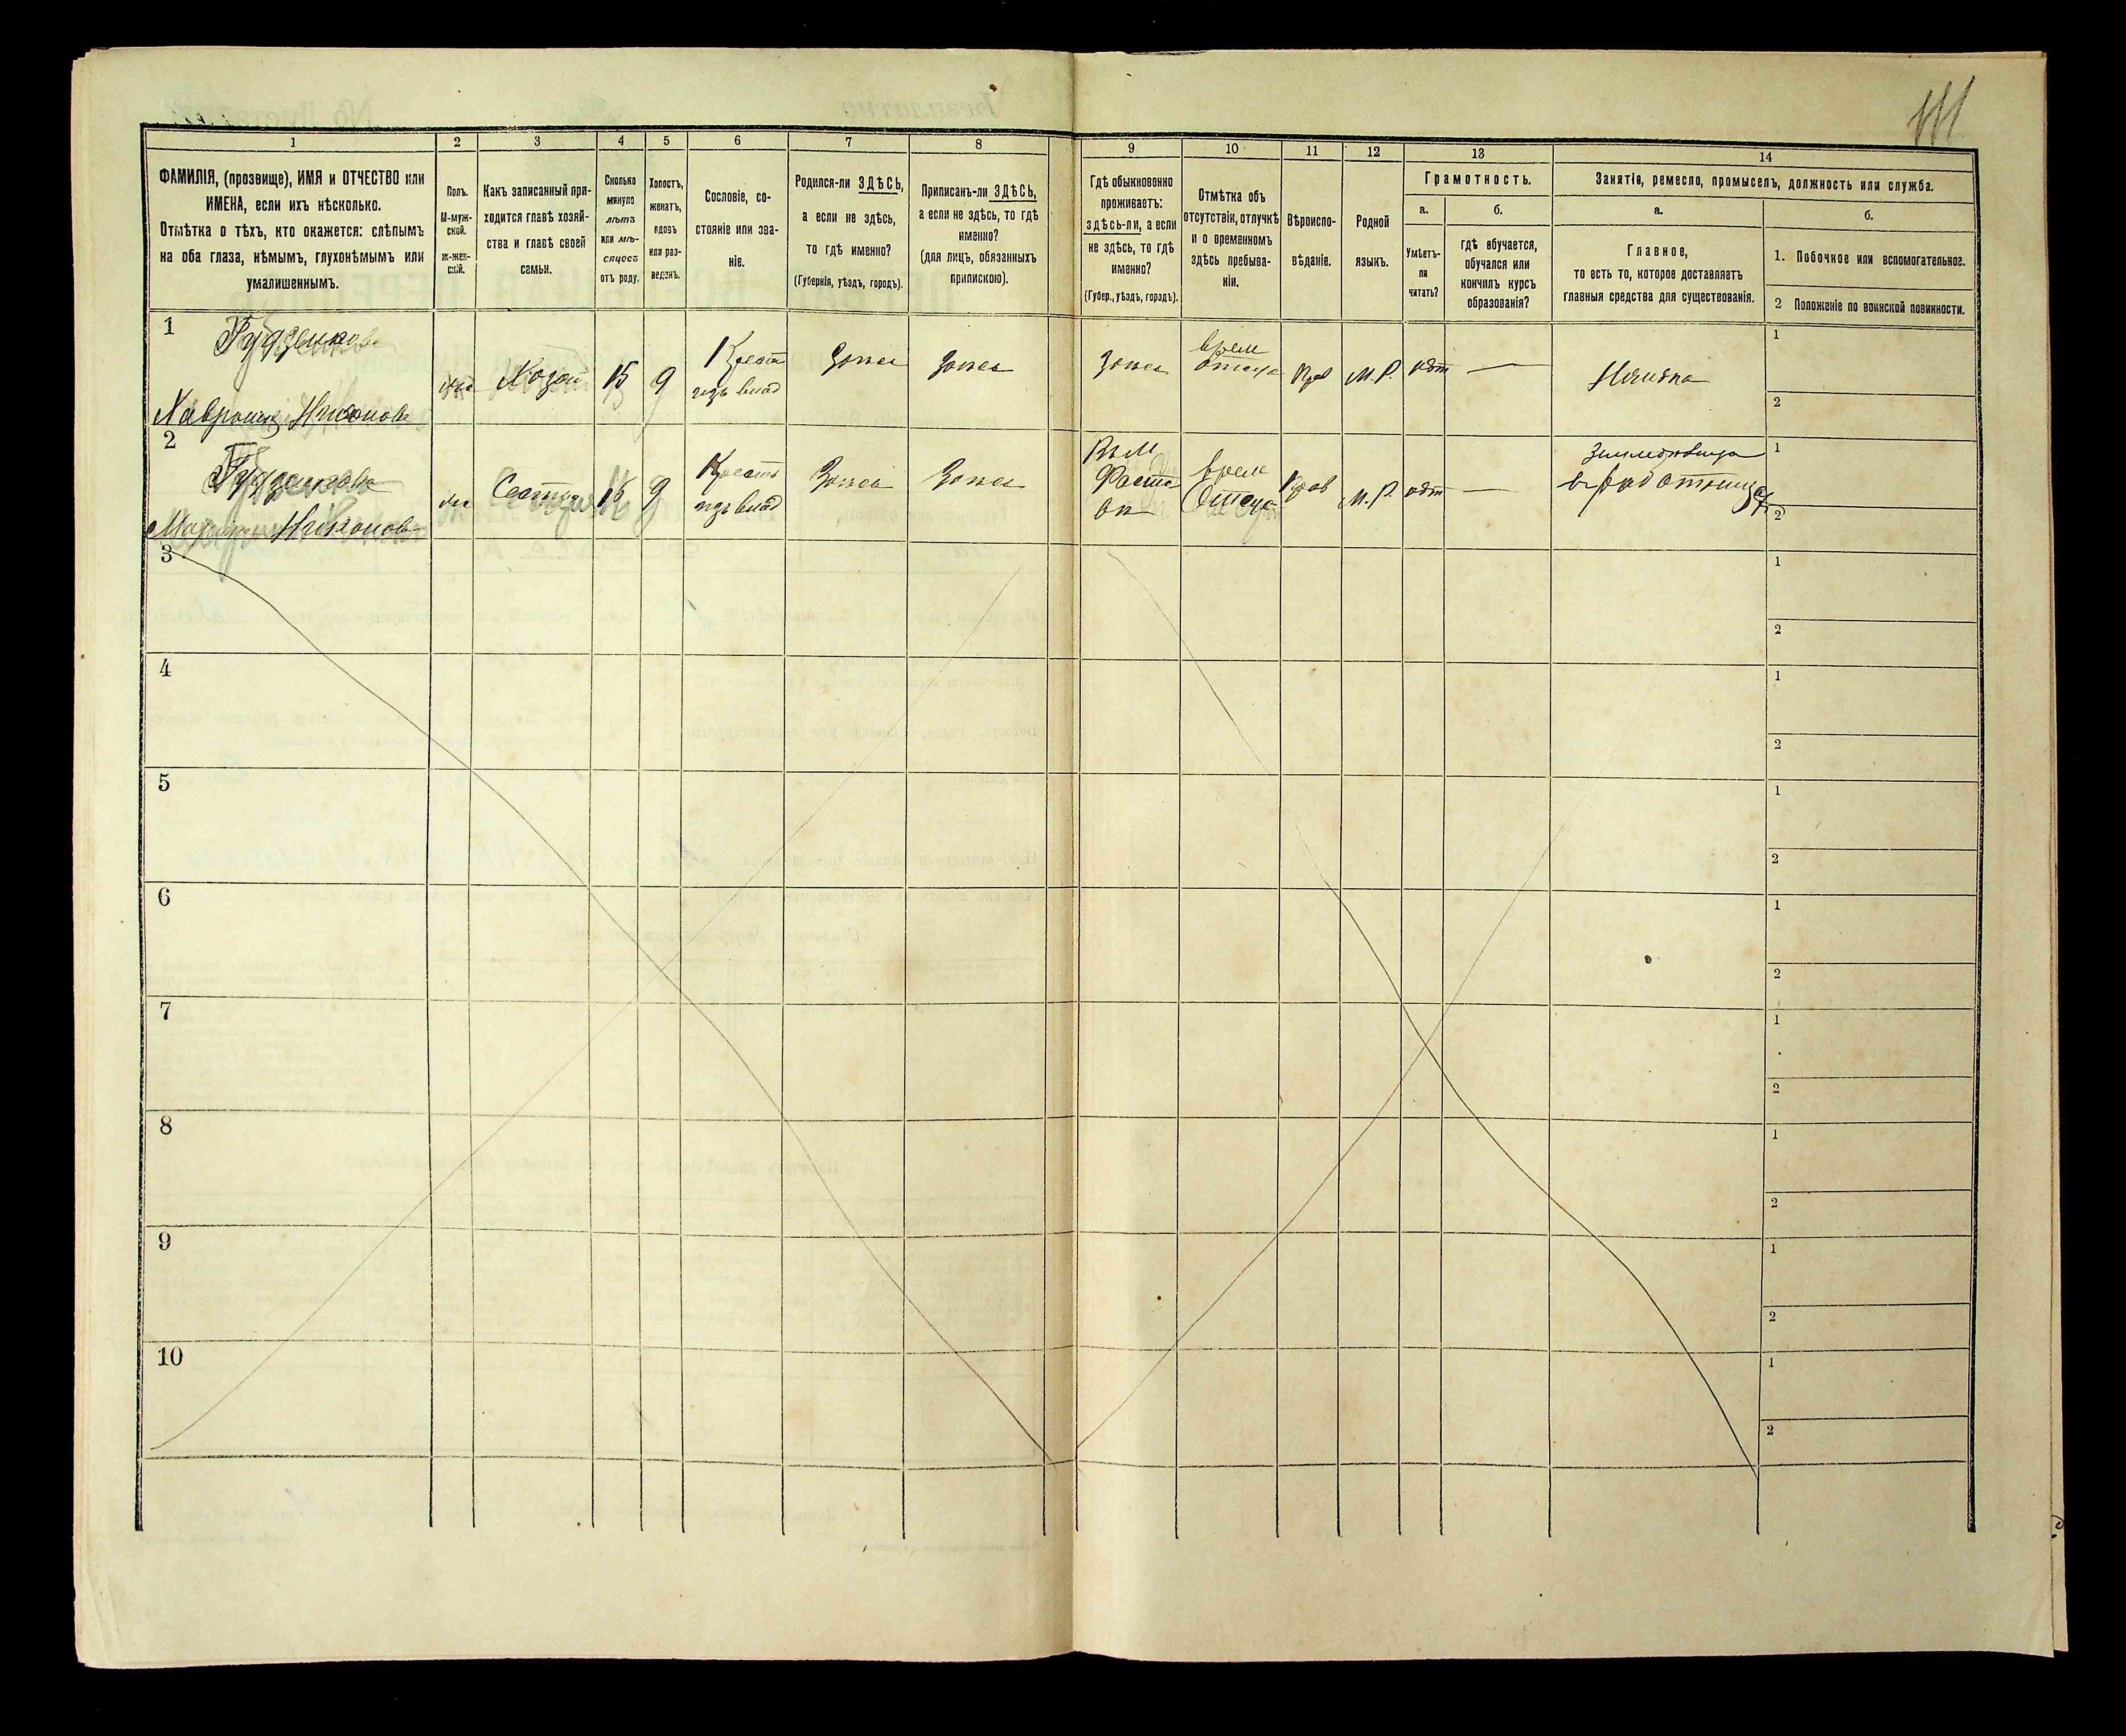 1
2
3
4
5
6
7
8
9
10
11
12
13
14
ФАМИЛІЯ, (прозвище), ИМЯ и ОТЧЕСТВО или
ИМЕНА, если ихъ нѣсколько.
Отмѣтка о тѣхъ, кто окажется: слѣпымъ
на оба глаза, нѣмымъ, глухонѣмымъ или
умалишеннымъ.
Полъ.
М-муж-
ской.
ж-жен-
скій.
Какъ записанный при-
ходится главѣ хозяй-
ства и главѣ своей
семьи.
Сколько
минуло
лѣтъ
или мѣ-
сяцевъ
отъ роду.
Холостъ,
женатъ,
вдовъ
или раз-
веденъ.
Сословіе, со-
стояніе или зва-
ніе.
Родился-ли ЗДѢСЬ,
а если не здѣсь,
то гдѣ именно?
(Губернія, уѣздъ, городъ).
Приписанъ-ли ЗДѢСЬ,
а если не здѣсь, то гдѣ
именно?
(для лицъ, обязанныхъ
припискою).
Гдѣ обыкновенно
проживаетъ:
здѣсь-ли, а если
не здѣсь, то гдѣ
именно?
(Губер., уѣздъ, городъ).
Отмѣтка объ
отсутствіи, отлучкѣ
и о временномъ
здѣсь пребыва-
ніи.
Вѣроиспо-
вѣданіе.
Родной
языкъ.
Грамотность.
а.
Умѣетъ-
ли
читать?
б.
гдѣ обучается,
обучался или
кончилъ курсъ
образованія?
Занятія, ремесло, промыселъ, должность или служба.
а.
Главное,
то есть то, которое доставляетъ
главныя средства для существованія.
б.
1. Побочное или вспомогательное.
2 Положеніе по воинской повинности.
1
Гудзенкова
Хаврония Никонова
Хозяй
15
д
Крест
изъ влад
Здесь
Здесь
Здесь
врем
отсут
Прав
М.Р.
нѣт
—
Нянька
1
2
2
Гудзенкова
Марина Никонова
Сестра
16
д
Крестъ
изъ влад
Здесь
Здесь
врем
Отсут
Прав
М.Р.
нѣт
—
1
2
3
1
2
4
1
2
5
1
2
6
1
2
7
1
2
8
1
2
9
1
2
10
1
2